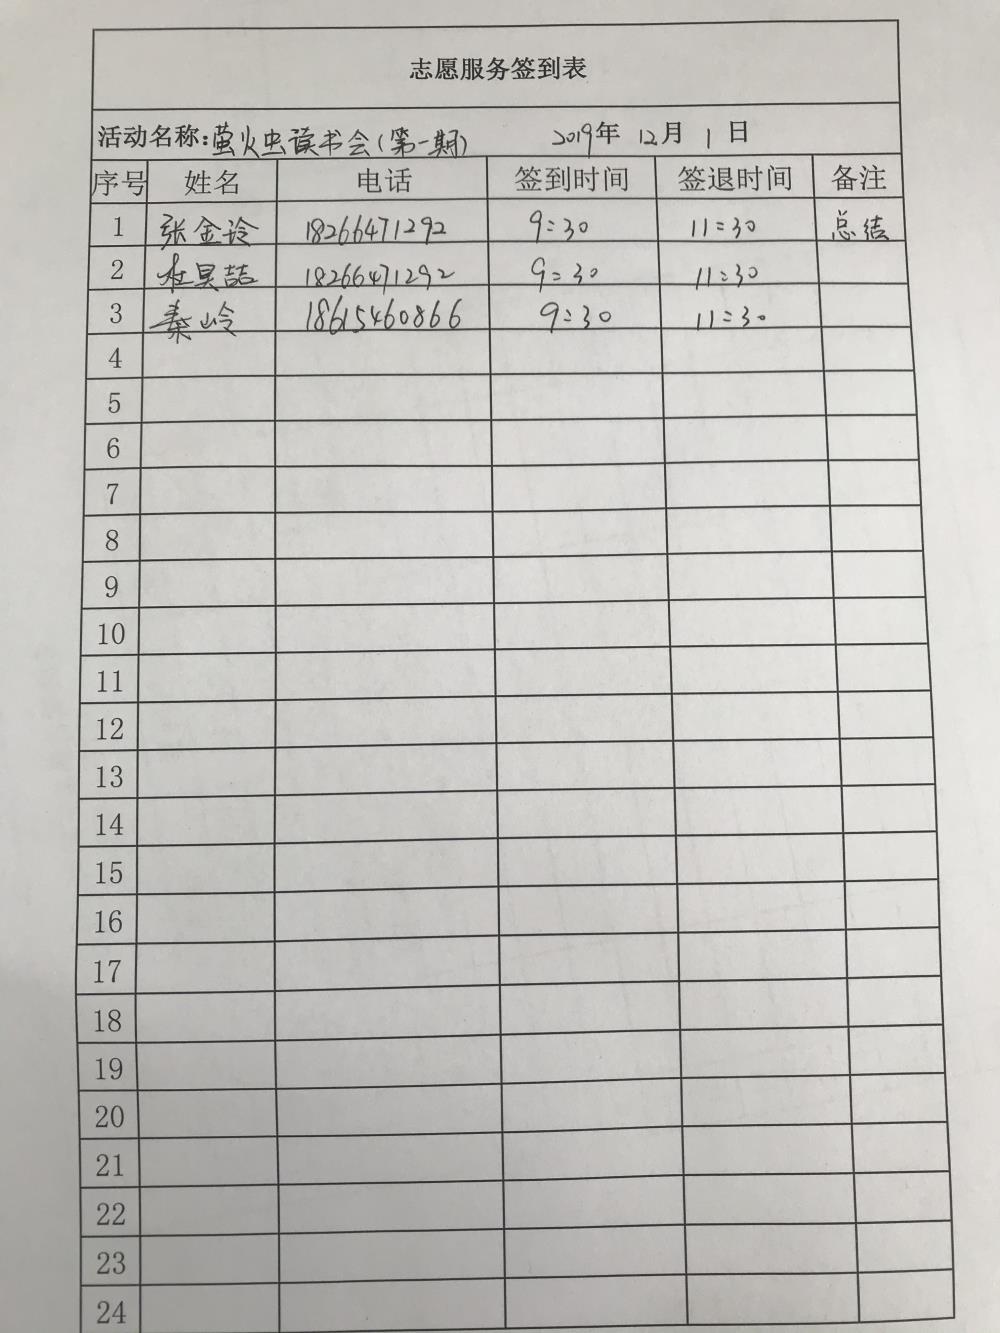 志愿服务签到表
活动名称:萤火虫读书会(第一期) 2019年 12月 1日
序号 姓名 电话 签到时间 签退时间 备注
1 张金玲 18266471292 9:30 11:30 总结
2 杜昊喆 18266471292 9:30 11:30
3 秦岭 18615460866 9:30 11:30
4
5
6
7
8
9
10
11
12
13
14
15
16
17
18
19
20
21
22
23
24